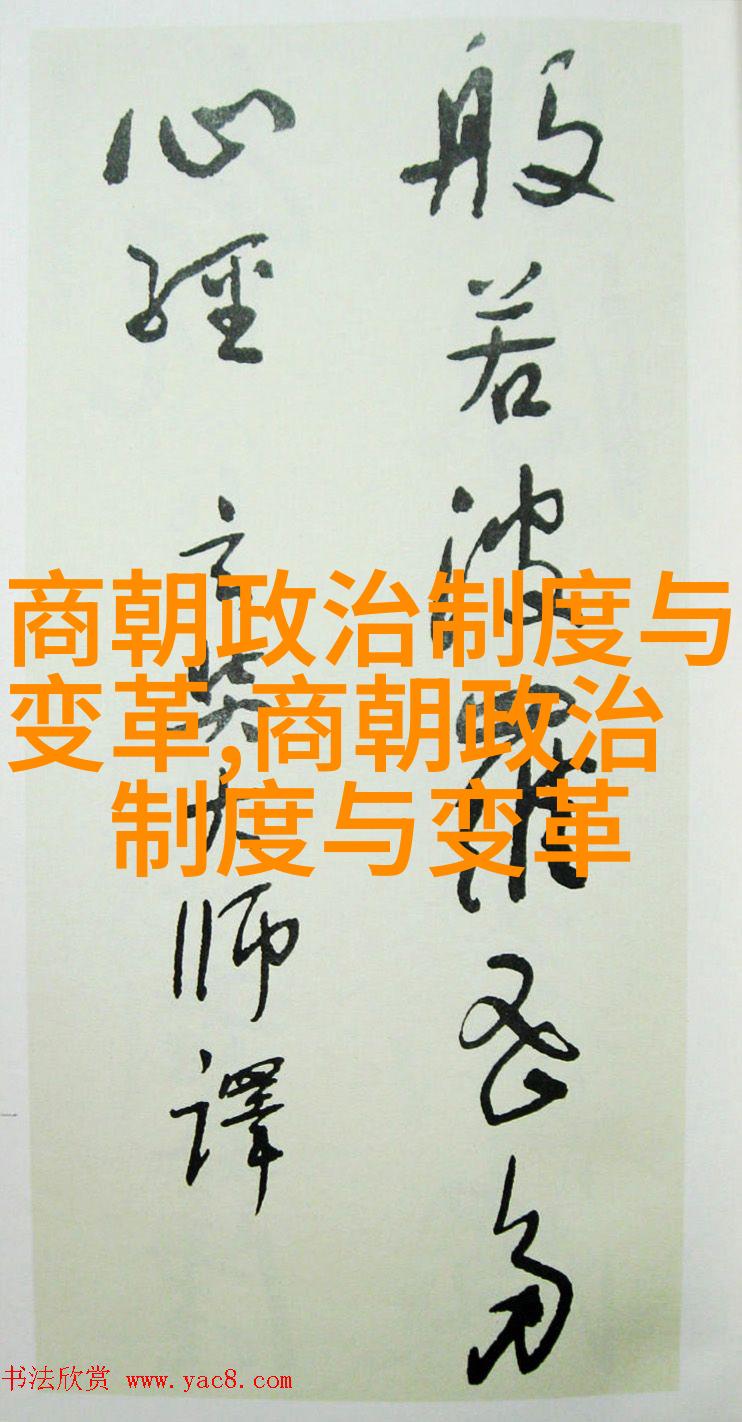 般若波羅蜜多
心經 玄奘大师譯
商朝政治制度与
变革,商朝政治
制度与变革
书法欣赏 www.yac8.com